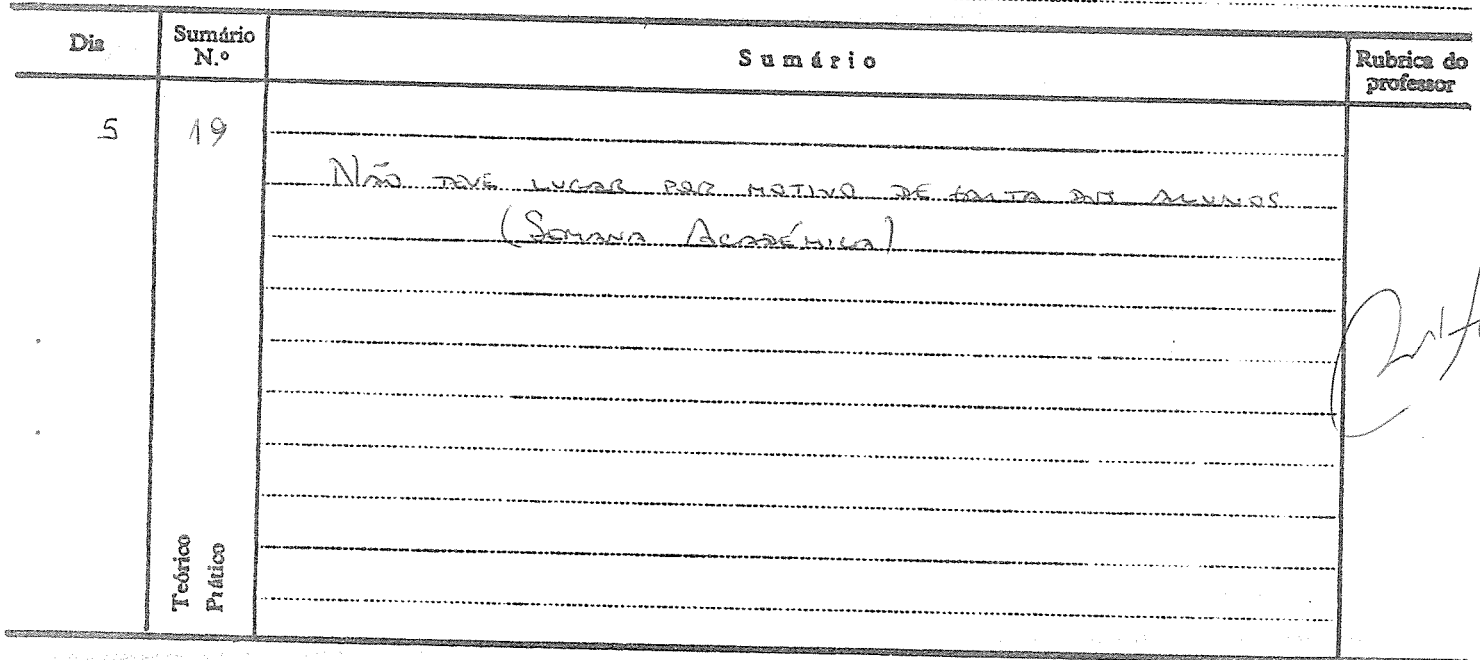 Dia
Sumário N.º
Sumário
Rubrica do professor
5
19
NÃO TEVE LUGAR POR MOTIVO DE FALTA DOS ALUNOS
(SEMANA ACADÉMICA)
Teórico
Prático